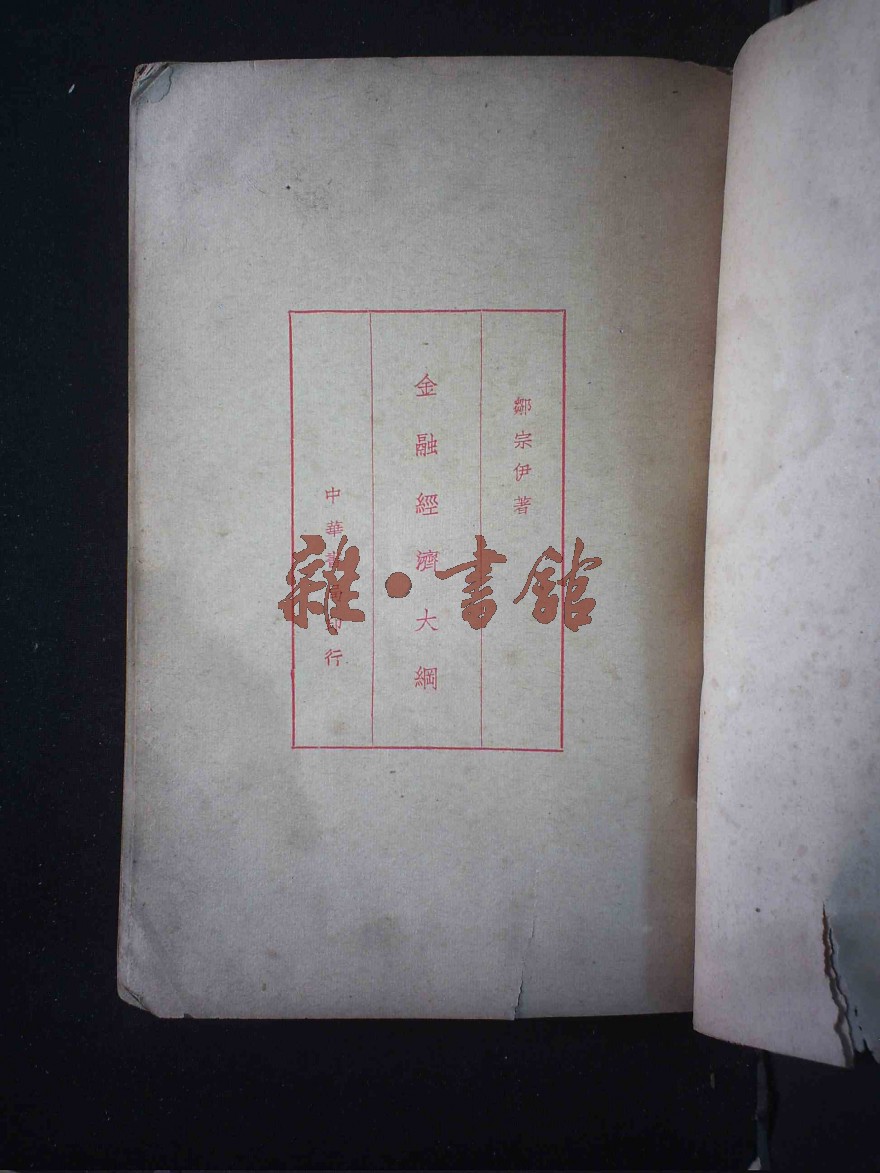 鄒宗伊著
金融經濟大綱
中華書局印行
雜·書館